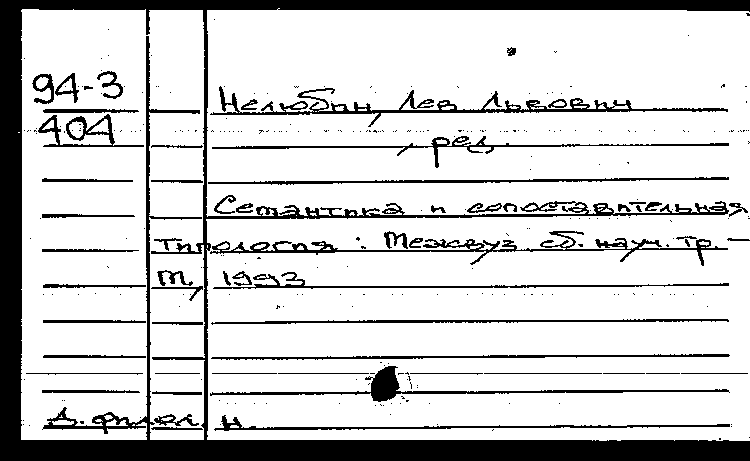 94-3
404
Нелюбин, Лев Львович
, ред.
Семантика и сопоставительная
типология : Межвуз. сб. науч. тр. –
М., 1993
Д. филол. н.